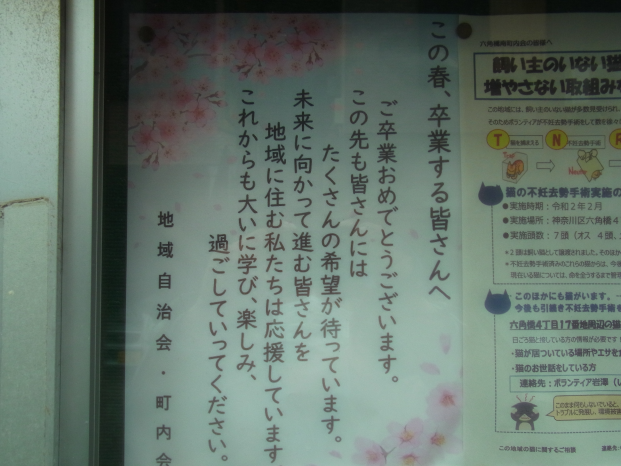 この春、卒業する皆さんへ
ご卒業おめでとうございます。
この先も皆さんには
たくさんの希望が待っています。
未来に向かって進む皆さんを
地域に住む私たちは応援しています
これからも大いに学び、楽しみ、
過ごしていってください。
地域自治会・町内会
六角橋町内会の皆様へ
飼い主のいない猫
増やさない取組み
T
N
不妊去勢手術
猫の不妊去勢手術実施の
●実施時期：令和2年2月
●実施場所：神奈川区六角橋4
●実施頭数：7頭（オス 4頭、
このほかにも猫がいます。
今後も引続き不妊去勢手術
六角橋4丁目17番地周辺の猫
・猫が居ついている場所やエサを
・猫のお世話をしている方
連絡先：ボランティア岩澤
この地域の猫に関するご相談